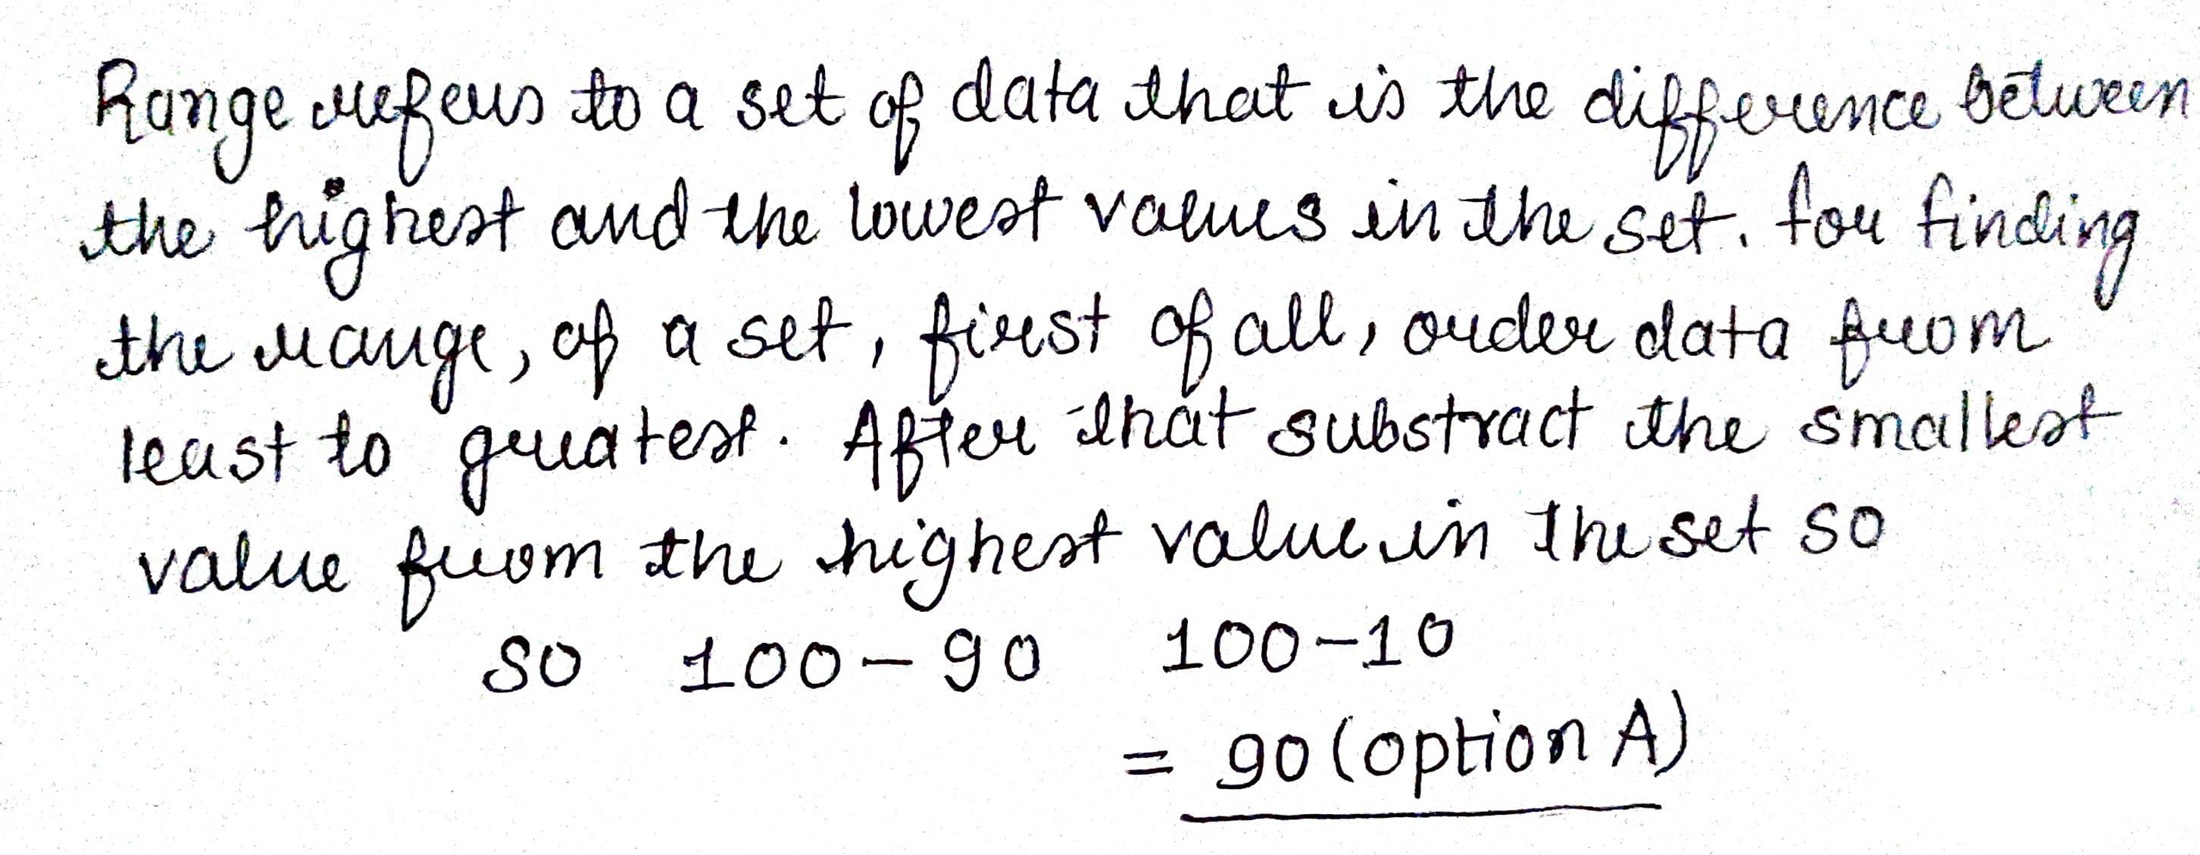 Range refers to a set of data that is the difference between
the highest and the lowest values in the set. for finding
the range, of a set, first of all, order data from
least to greatest. After that substract the smallest
value from the highest value in the set so
so 100-90 100-10
= 90 (option A)